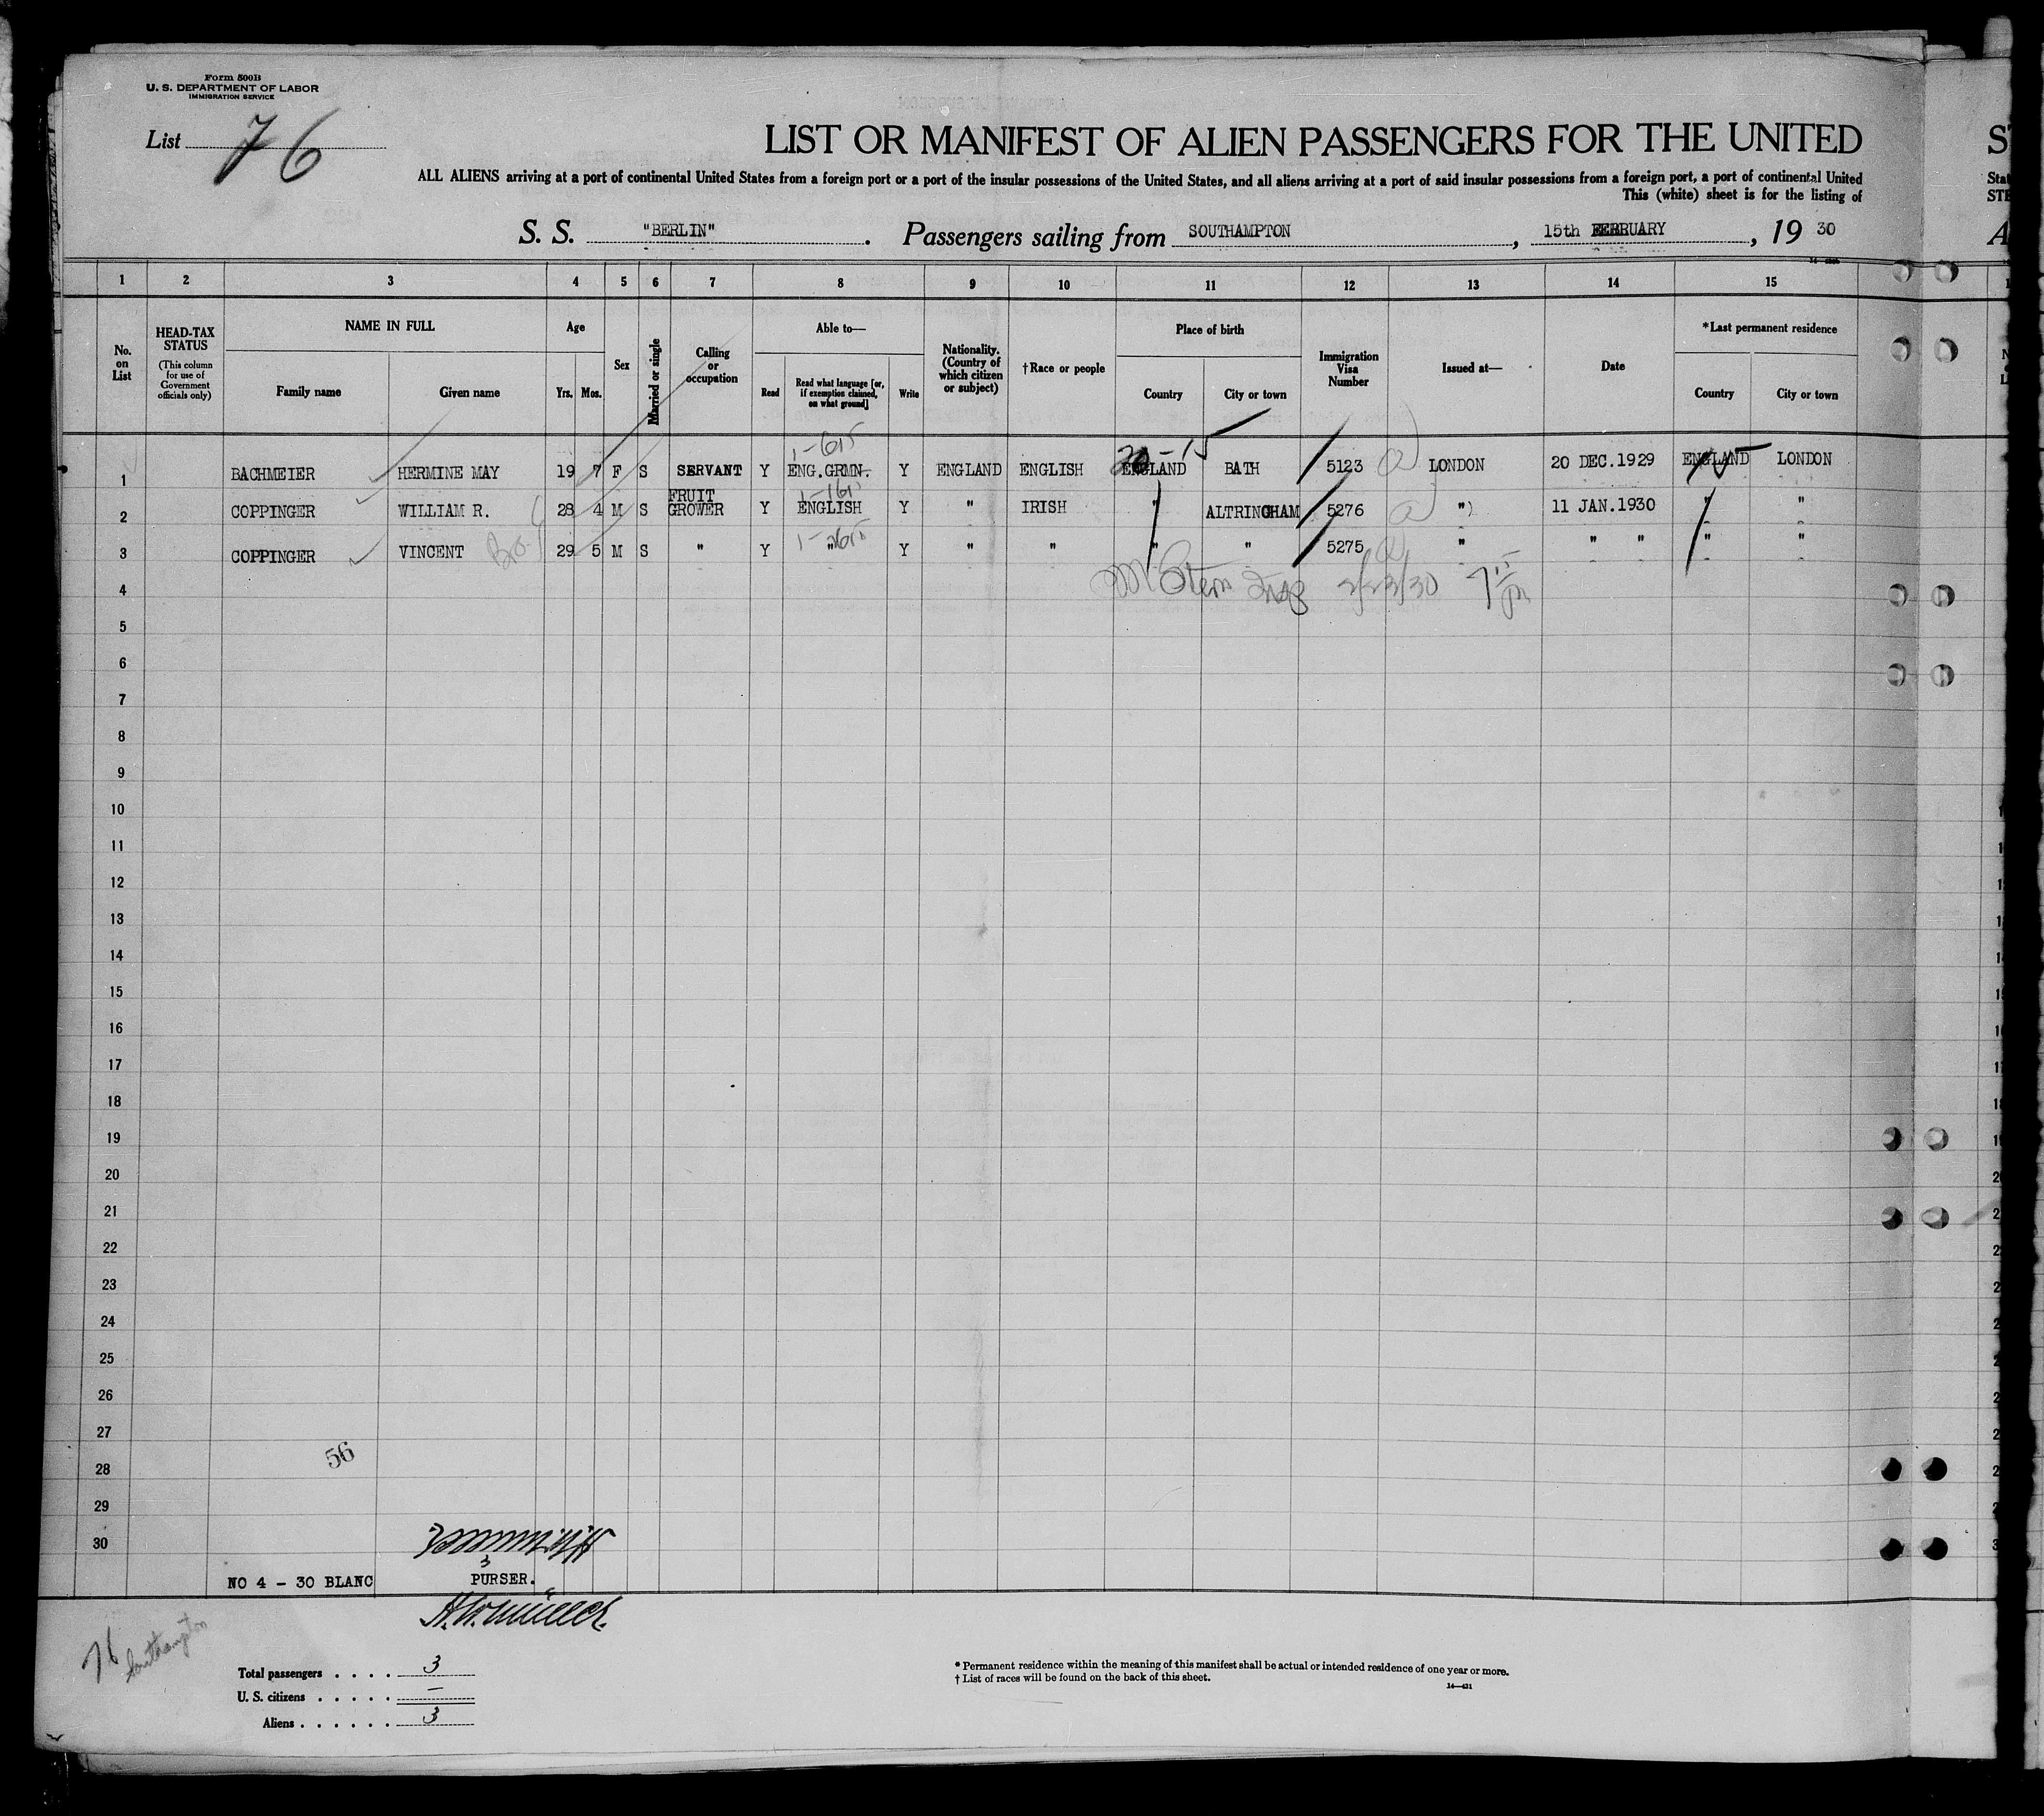 Form 500B
U. S. DEPARTMENT OF LABOR
IMMIGRATION SERVICE
List 76
LIST OR MANIFEST OF ALIEN PASSENGERS FOR THE UNITED
ALL ALIENS arriving at a port of continental United States from a foreign port or a port of the insular possessions of the United States, and all aliens arriving at a port of said insular possessions from a foreign port, a port of continental United
This (white) sheet is for the listing of
S. S. "BERLIN". Passengers sailing from SOUTHAMPTON, 15th FEBRUARY, 19 30
1 2 3 4 5 6 7 8 9 10 11 12 13 14 15
No. on List
HEAD-TAX STATUS
(This column for use of Government officials only)
NAME IN FULL
Family name Given name
Age
Yrs. Mos.
Sex
Married or single
Calling or occupation
Able to—
Read
Read what language [or, if exemption claimed, on what ground]
Write
Nationality. (Country of which citizen or subject)
†Race or people
Place of birth
Country City or town
Immigration Visa Number
Issued at—
Date
*Last permanent residence
Country City or town
1-615
20-15
1 BACHMEIER HERMINE MAY 19 7 F S SERVANT Y ENG.GRMN. Y ENGLAND ENGLISH ENGLAND BATH 5123 LONDON 20 DEC.1929 ENGLAND LONDON
2 COPPINGER WILLIAM R. 28 4 M S FRUIT GROWER Y ENGLISH Y " IRISH " ALTRINGHAM 5276 " 11 JAN.1930 " "
3 COPPINGER VINCENT 29 5 M S " Y " Y " " " " 5275 " " " " "
M Stern Insp 2/23/30
4
5
6
7
8
9
10
11
12
13
14
15
16
17
18
19
20
21
22
23
24
25
26
27
28
29
30
56
NO 4 - 30 BLANC
PURSER.
76 Southampton
Total passengers . . . . 3
U. S. citizens . . . . . —
Aliens . . . . . . 3
* Permanent residence within the meaning of this manifest shall be actual or intended residence of one year or more.
† List of races will be found on the back of this sheet.
14—431